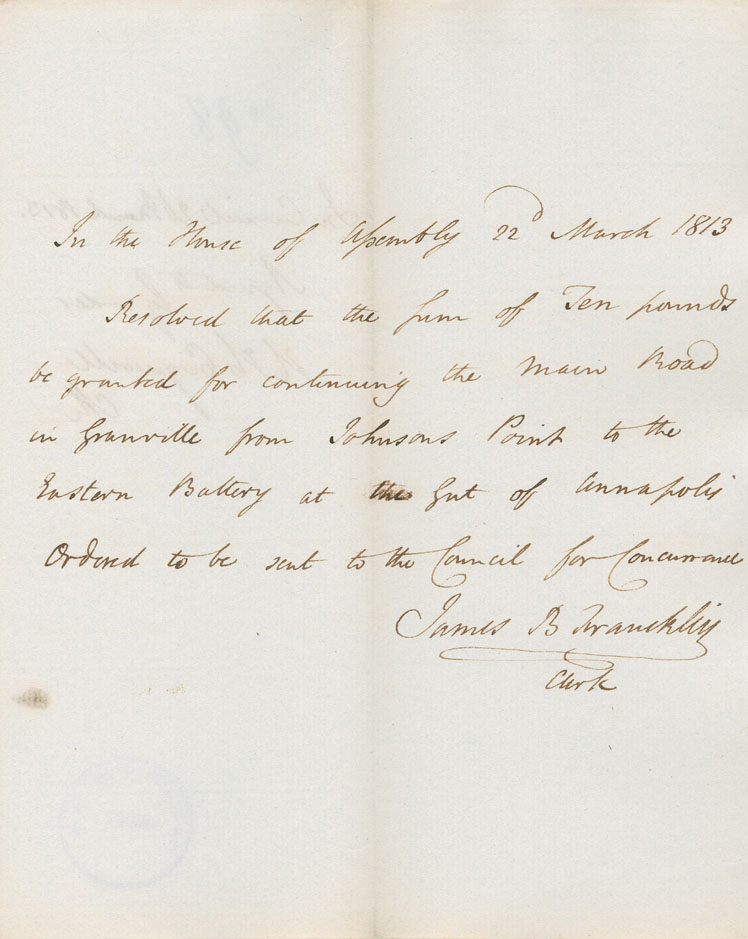 In the House of Assembly 22d March 1813
Resolved that the sum of Ten pounds
be granted for continuing the Main Road
in Granville from Johnsons Point to the
Eastern Battery at the Gut of Annapolis
Ordered to be sent to the Council for Concurrance
James B Francklin
Clerk